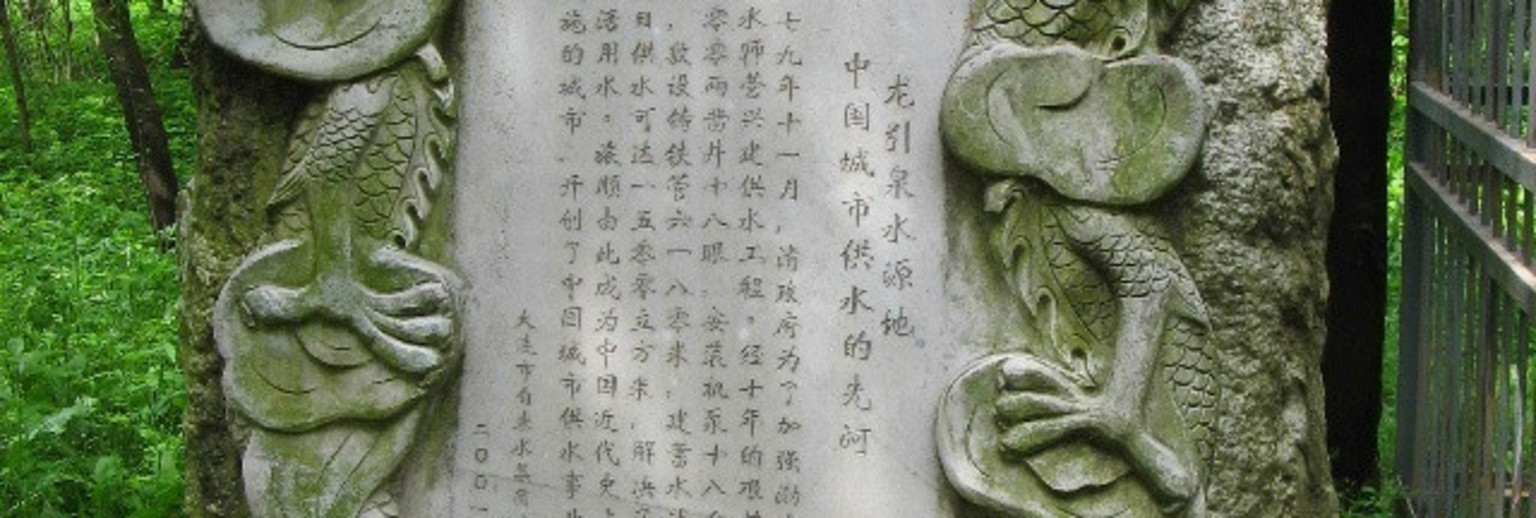 龙引泉水源地
中国城市供水的先河
七九年十一月，清政府为了加强
水师营兴建供水工程。经十年的艰
零零两凿井十八眼，安装机泵十八
，敷设铸铁管六一八零米，建蓄水
日供水可达一五零零立方米，解决
活用水。旅顺由此成为中国近代史上
施的城市、开创了中国城市供水事
大连市自来水集
二〇〇